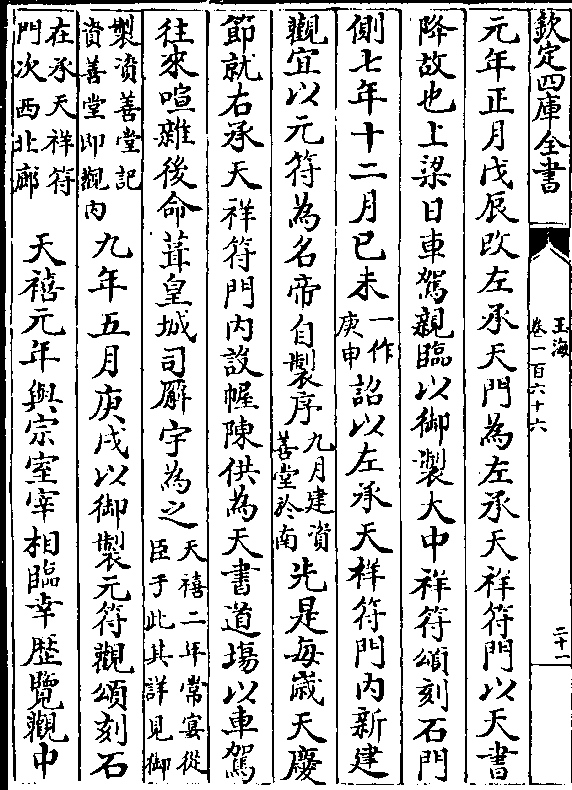 欽定四庫全書
玉海
卷一百六十六
二十一
元年正月戊辰改左承天門為左承天祥符門以天書
降故也上梁日車駕親臨以御製大中祥符頌刻石門
側七年十二月己未一作庚申詔以左承天祥符門内新建
觀宜以元符為名帝自製序九月建資善堂於南先是每歲天慶
節就右承天祥符門内設幄陳供為天書道場以車駕
往來喧雜後命葺皇城司廨宇為之天禧二年常宴從臣于此其詳見御
製資善堂記資善堂即觀内九年五月庚戌以御製元符觀頌刻石
在承天祥符門次西北廊天禧元年與宗室宰相臨幸歴覽觀中